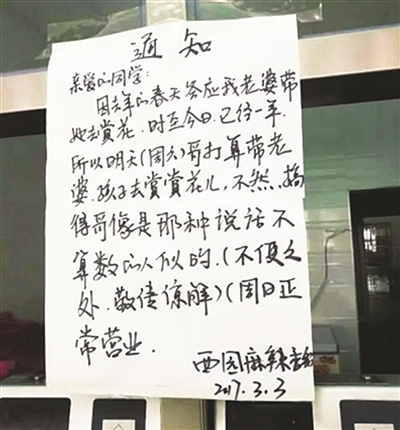 通知
亲爱的同学:
因去年的春天答应我老婆带
她去赏花.时至今日.已经一年.
所以明天(周六)哥打算带老
婆.孩子去赏赏花儿,不然,搞
得哥像是那种说话不
算数的人似的.(不便之
处.敬请谅解)(周日正
常营业.
西园麻辣香锅
2017.3.3